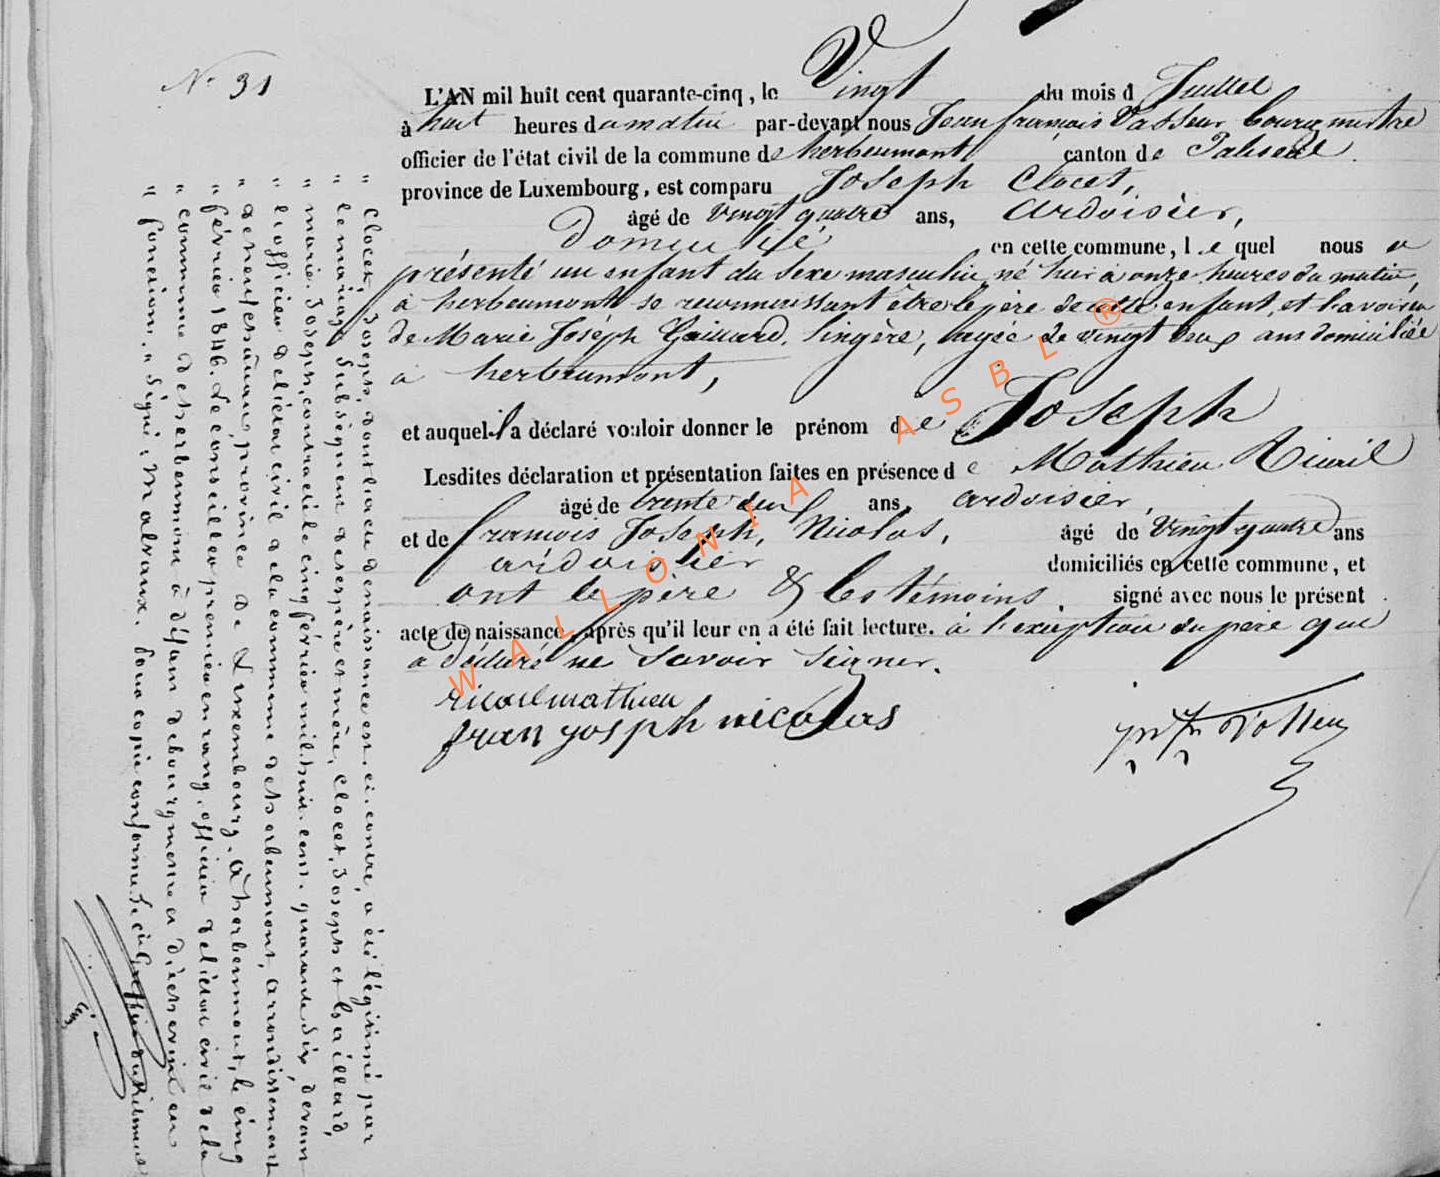 N° 31
L'AN mil huit cent quarante-cinq, le Vingt du mois d Juillet
à huit heures du matin par-devant nous Jean françois Vasseur bourgmestre
officier de l'état civil de la commune de herbeumont canton de Paliseul
province de Luxembourg, est comparu Joseph Clocet,
âgé de vingt quatre ans, Ardoisier,
domicilié en cette commune, lequel nous a
présenté un enfant du sexe masculin, né hier à onze heures du matin,
à herbeumont se reconnaissant être le père de cet enfant, et l'avoir eu
de Marie Joséph Gaillard, lingère, agée de vingt deux ans domiciliée
à herbeumont,
et auquel il a déclaré vouloir donner le prénom de Joseph
Lesdites déclaration et présentation faites en présence de Mathieu Ricail
âgé de trente deux ans, ardoisier
et de françois Joseph, Nicolas, âgé de Vingt quatre ans
ardoisier domiciliés en cette commune, et
ont le père & les témoins signé avec nous le présent
acte de naissance, après qu'il leur en a été fait lecture. à l'exception du père qui
a déclaré ne savoir signer.
ricail mathieu
fran yosph nicolas
Vasseur
" Clocet, Joseph, dont l'acte de naissance est ci-contre, a été légitimé par
" le mariage subséquent de ses père et mère, Clocet, Joseph et Gaillard,
" marie-Joseph, contracté le cinq février mil-huit-cent-quarante-six, devant
" l'officier de l'état civil de la commune de herbeumont, arrondissement
" de neufchâteau, province de Luxembourg. à herbeumont, le cinq
" février 1846. Le conseiller premier en rang, officier de l'état civil de la
" commune de herbeumont à défaut de bourgmestre d' en
" fonctions. " signé, M alvaux. Pour copie conforme, Le Greffier du Tribunal
WALLONIA ASBL ®